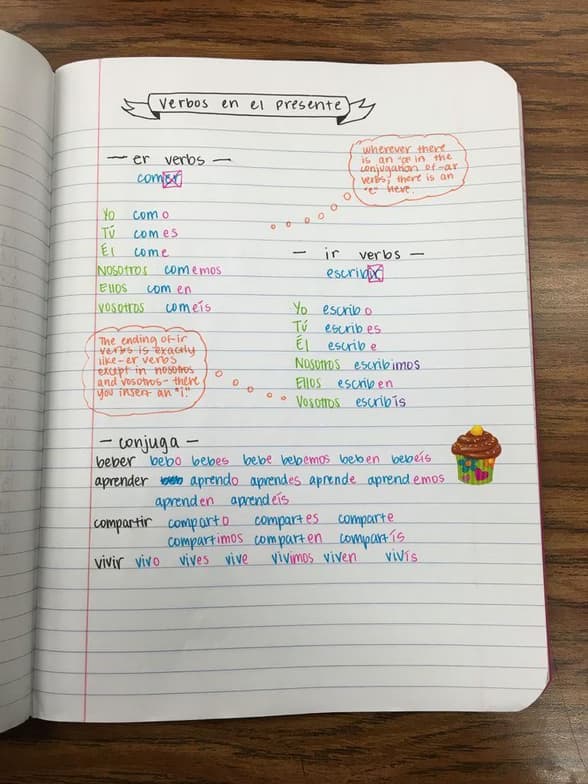 verbos en el presente
— er verbs —
comer
Yo como
Tú comes
Él come
Nosotros comemos
Ellos comen
Vosotros coméis
wherever there
is an "a" in the
conjugation of -ar
verbs, there is an
"e" here.
— ir verbs —
escribir
Yo escribo
Tú escribes
Él escribe
Nosotros escribimos
Ellos escriben
Vosotros escribís
The ending of -ir
verbs is exactly
like -er verbs
except in nosotros
and vosotros - there
you insert an "i."
— conjuga —
beber bebo bebes bebe bebemos beben bebeís
aprender aprendo aprendes aprende aprendemos
aprenden aprendeís
compartir comparto compartes comparte
compartimos comparten compartís
vivir vivo vives vive vivimos viven vivís